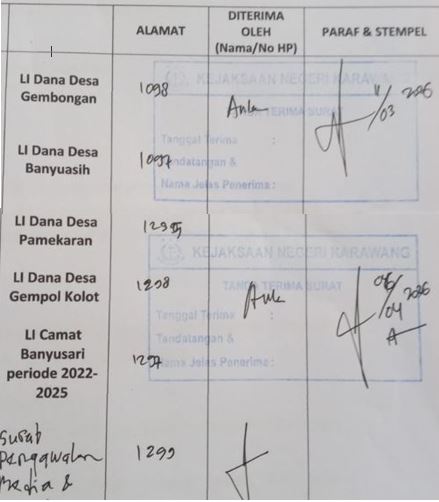 ALAMAT
DITERIMA
OLEH
(Nama/No HP)
PARAF & STEMPEL
LI Dana Desa
Gembongan
1098
Aula
11/03 2026
KEJAKSAAN NEGERI KARAWANG
TANDA TERIMA SURAT
Tanggal Terima :
Tandatangan &
Nama Jelas Penerima :
LI Dana Desa
Banyuasih
1097
LI Dana Desa
Pamekaran
LI Dana Desa
Gempol Kolot
1298
Aula
04 2026
KEJAKSAAN NEGERI KARAWANG
TANDA TERIMA SURAT
Tanggal Terima :
Tandatangan &
Nama Jelas Penerima :
LI Camat
Banyusari
periode 2022-
2025
1297
Surat
Pengawalan
Media &
1299